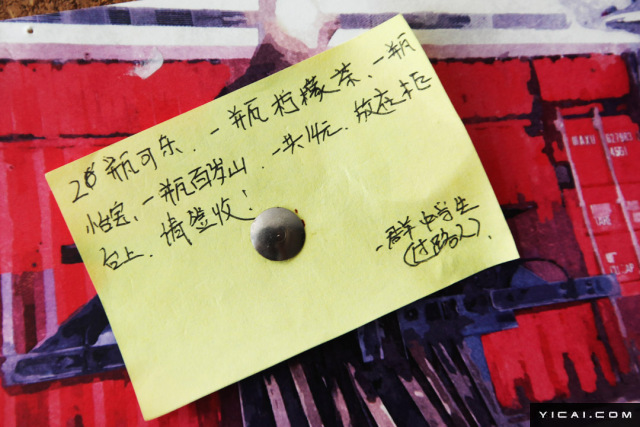 2瓶可乐、一瓶柠檬茶、一瓶
怡宝、一瓶百岁山,一共14元,放在柜
台上,请签收!
一群中学生
(过路人).
MAXU 627943
45G1
YICAI.COM